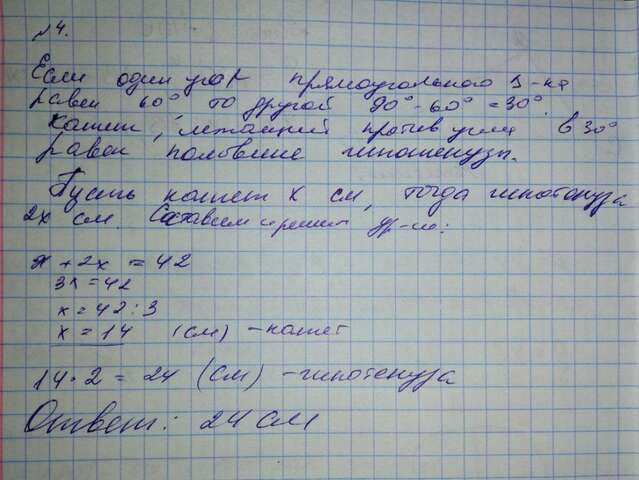 №4.
Если один угол прямоугольного Δ-ка
равен 60°, то другой 90° - 60° = 30°.
Катет, лежащий против угла в 30°
равен половине гипотенузы.
Пусть катет x см, тогда гипотенуза
2x см. Составим и решим ур-ие:
x + 2x = 42
3x = 42
x = 42 : 3
x = 14 (см) - катет
14 · 2 = 24 (см) - гипотенуза
Ответ: 24 см